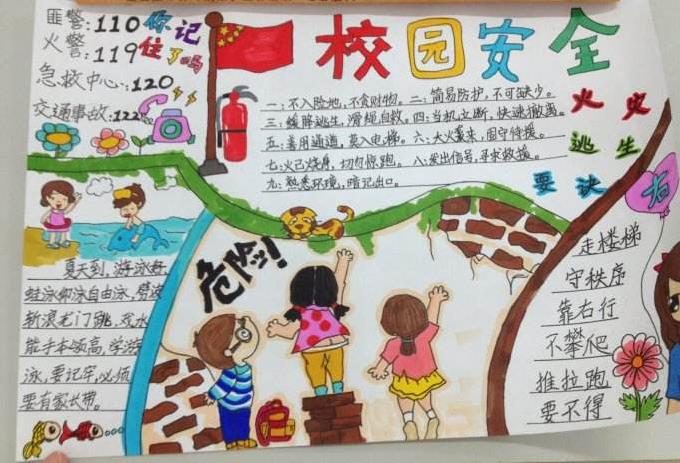 匪警:110
火警:119
急救中心:120
交通事故:122
你记
住了吗
校园安全
一:不入险地,不贪财物。二:简易防护,不可缺少。
三:缓降逃生,滑绳自救。四:当机立断,快速撤离。
五:善用通道,莫入电梯。六:大火袭来,固守待援。
七:火己烧身,切勿惊跑。八:发出信号,寻求救援。
九:熟悉环境,暗记出口。
火灾
逃生
要诀
夏天到,游泳好,
蛙泳仰泳自由泳,劈波
斩浪龙门跳,戏水
能手本领高,学游
泳,要记牢,必须
要有家长带。
危险!
右
走楼梯
守秩序
靠右行
不攀爬
推拉跑
要不得